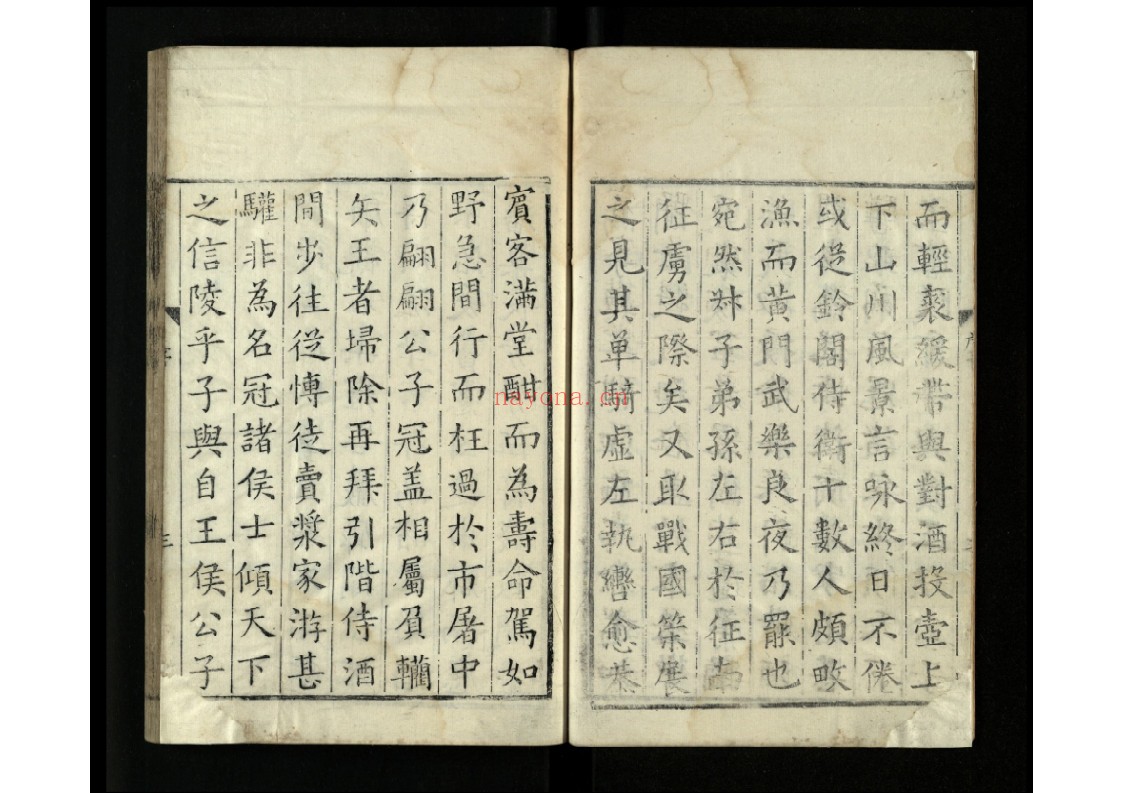 而輕裘緩帶與對酒投壺上
下山川風景言咏終日不倦
或從鈴閣侍衛十數人頗畋
漁而黃門武樂良夜乃罷也
宛然叔子弟孫左右於征南
征虜之際矣又取戰國策展
之見其單騎虛左執轡愈恭
賓客滿堂酣而為壽命駕如
野急間行而枉過於市屠中
乃翩翩公子冠蓋相屬負韊
矢王者埽除再拜引階侍酒
間步往從博徒賣漿家游甚
驩非為名冠諸侯士傾天下
之信陵乎子與自王侯公子
序
三
nayona.cn